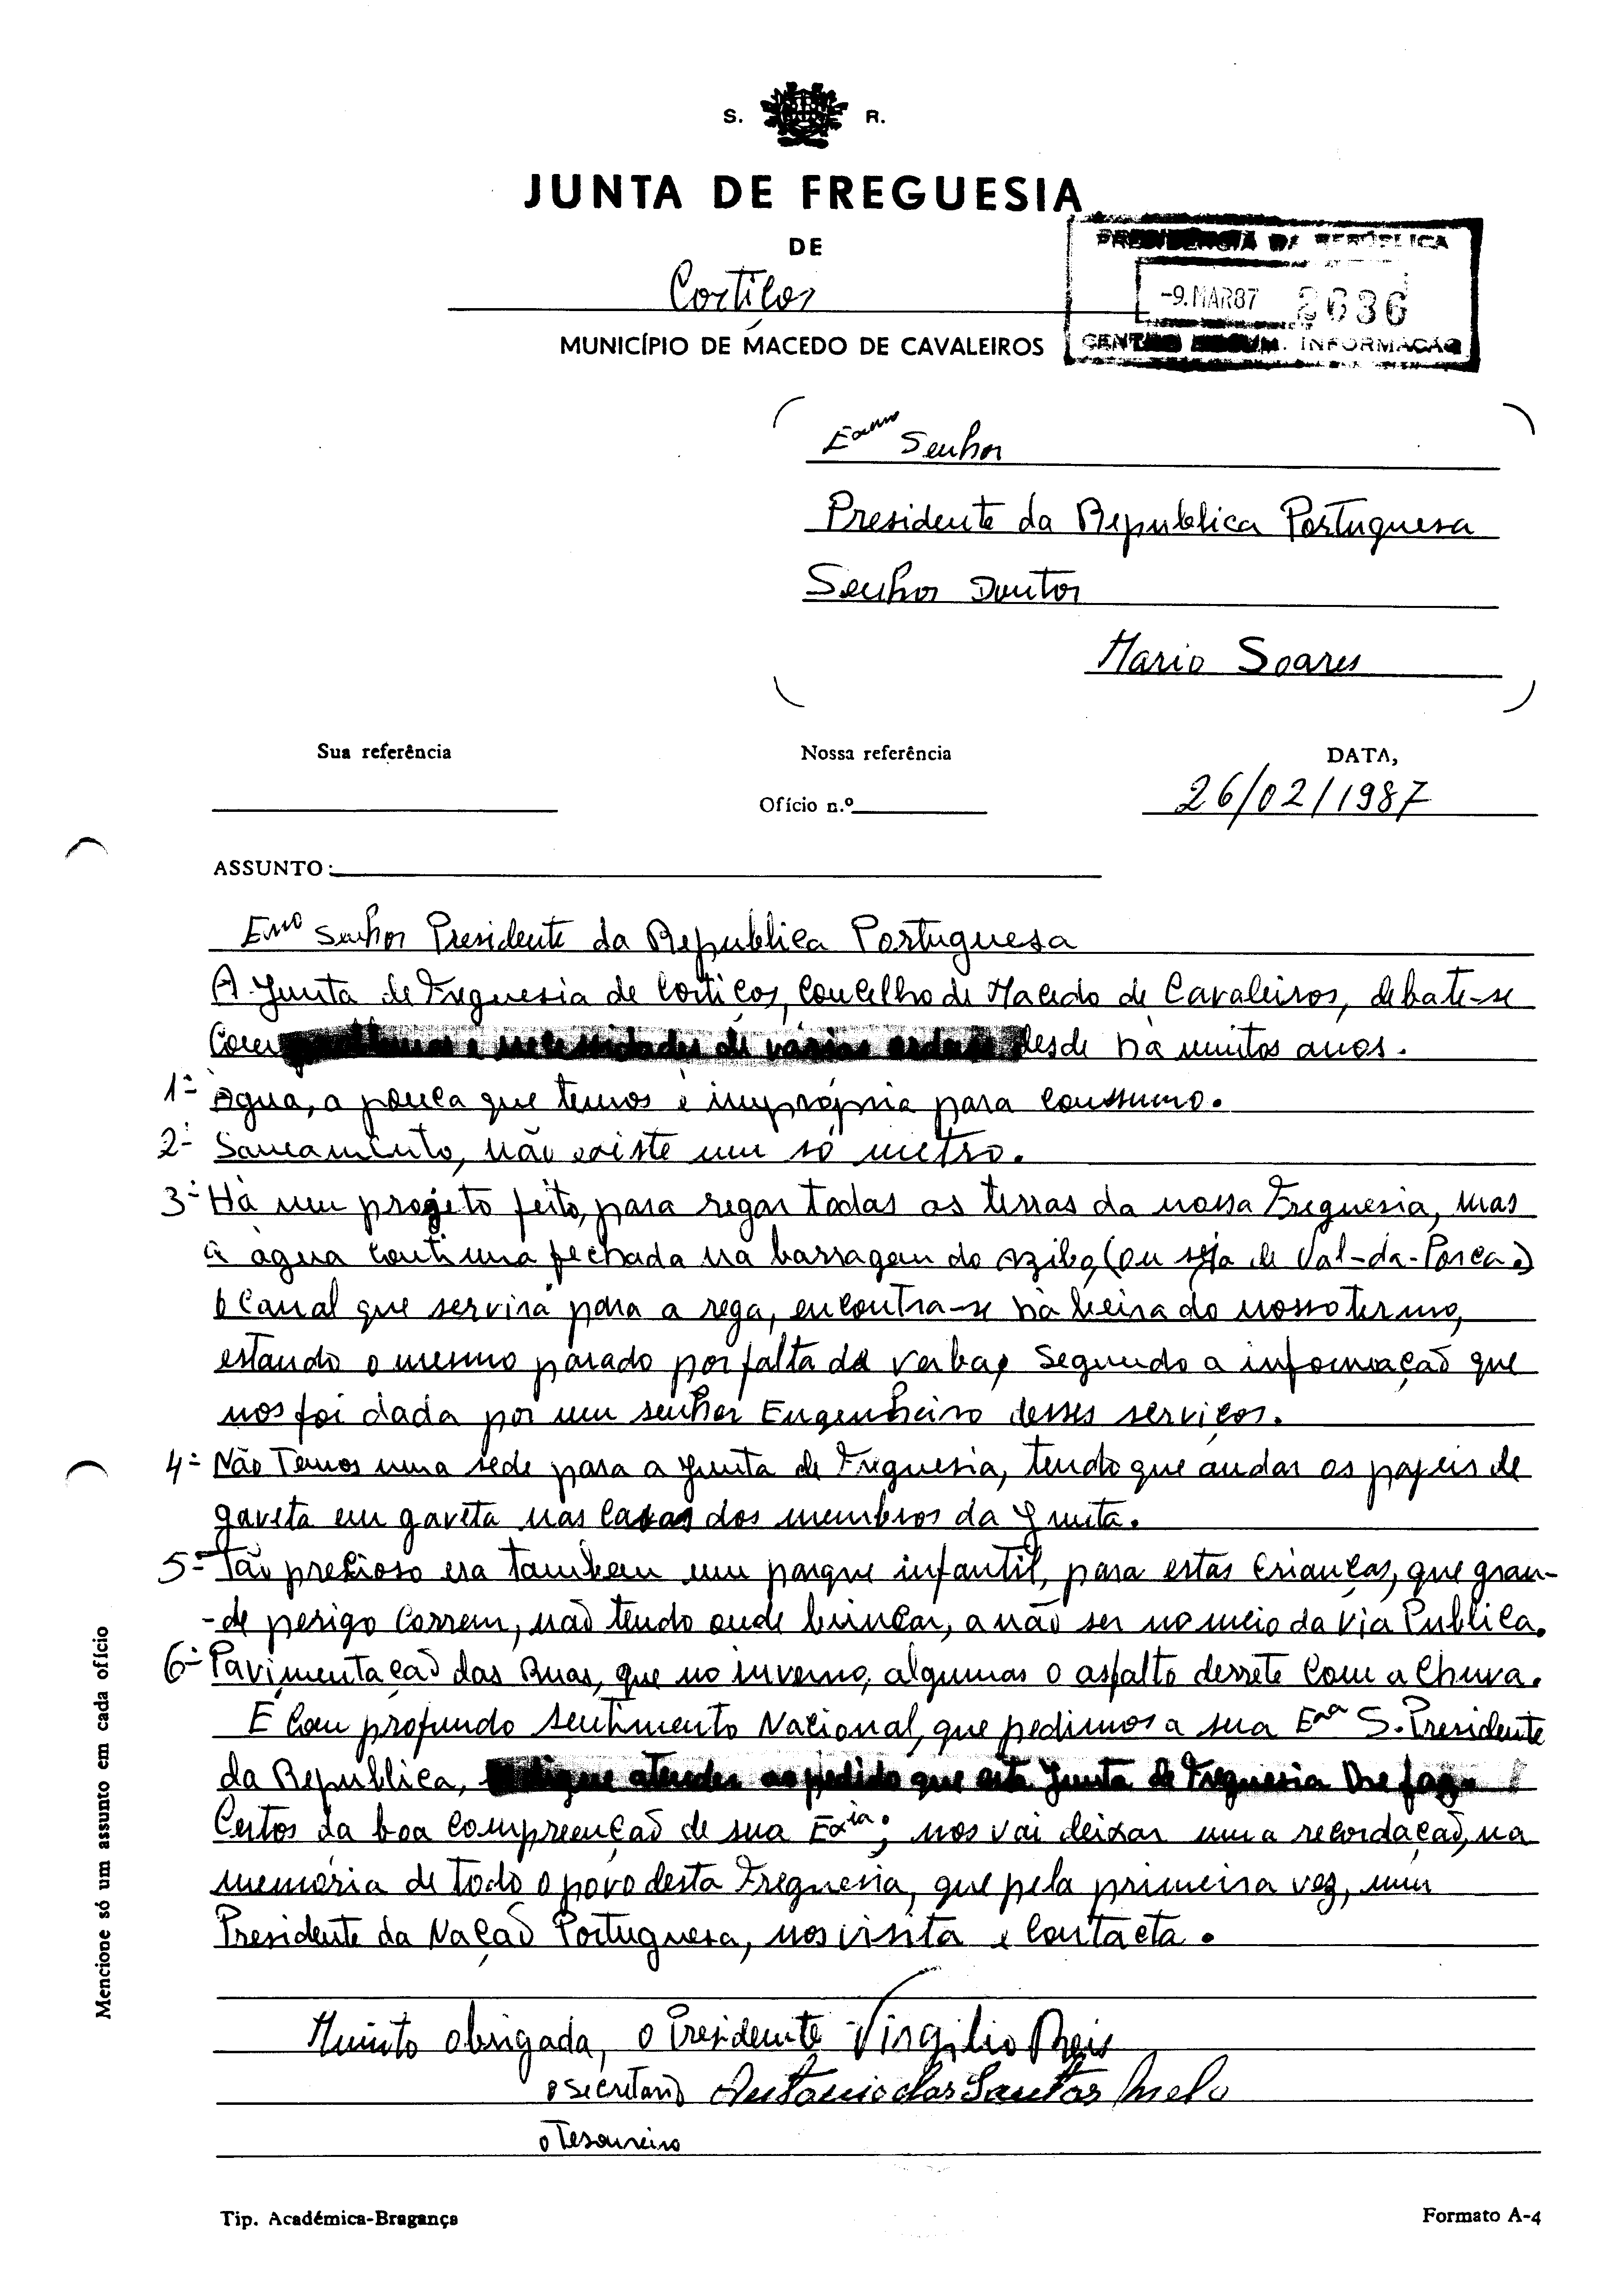 S. R.
JUNTA DE FREGUESIA
DE
Cortiços
MUNICÍPIO DE MACEDO DE CAVALEIROS
PRESIDÊNCIA DA REPÚBLICA
-9.MAR87 2636
CENTRO DOCUM. INFORMAÇÃO
Exmo Senhor
Presidente da Republica Portuguesa
Senhor Doutor
Mario Soares
Sua referência
Nossa referência
DATA,
Ofício n.º
26/02/1987
ASSUNTO:
Emo Senhor Presidente da Republica Portuguesa
A Junta de Freguesia de Cortiços, Concelho de Macedo de Cavaleiros, debate-se
Com problemas e necessidades de várias ordens desde há muitos anos.
1º- Agua, a pouca que temos é imprópria para Conssumo.
2º- Saneamento, não existe um só metro.
3º- Há um projeto feito, para regar todas as terras da nossa Freguesia, mas
a agua continua fechada na barragem do Azibo, (ou seja de Val-da-Porca.)
O Canal que servirá para a rega, encontra-se há beira do nosso termo,
estando o mesmo parado por falta de verba, Segundo a informação que
nos foi dada por um senhor Engenheiro desses serviços.
4º- Não Temos uma sede para a Junta de Freguesia, tendo que andar os papeis de
gaveta em gaveta nas Casas dos membros da Junta.
5º- Tão precioso era tambem um parque infantil, para estas Crianças, que gran-
-de perigo Correm, não tendo onde brincar, a não ser no meio da via Publica.
6º- Pavimentação das Ruas, que no inverno, algumas o asfalto derrete Com a Chuva.
É Com profundo sentimento Nacional, que pedimos a sua Exª S. Presidente
da Republica, se digne atender ao pedido que esta Junta de Freguesia lhe faz.
Certos da boa Compreenção de sua Exia; nos vai deixar uma recordação, na
memória de todo o povo desta Freguesia, que pela primeira vez, um
Presidente da Nação Portuguesa, nos visita e Contacta.
Muinto obrigada, o Presidente Virgilio Reis
o secretario Antonio dos Santos Melo
o Tesoureiro
Mencione só um assunto em cada ofício
Tip. Académica-Bragança
Formato A-4